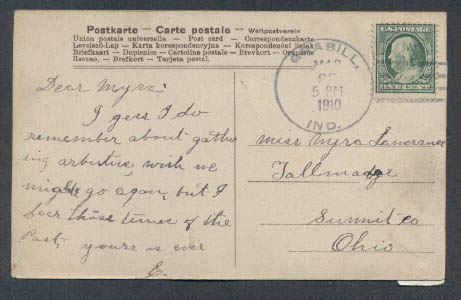 Postkarte – Carte postale – Weltpostverein
Union postale universelle – Post card – Correspondenzkarte
Levelező-Lap – Karta korespondencyjna – Korespondenční lístek
Briefkaart – Dopisnice – Cartolina postale – Brevkort –
– Brefkort – Tarjeta postal.
GRABILL,
MAR
5 PM
1910
IND.
U.S. POSTAGE
Dear Myra:
I gess I do
remember about gather
ing arbutus, wish we
might go again, but I
fear those times of the
Past,
yours as ever
E.
Miss Myra Lawrance
Tallmadge
Summit Co
Ohio